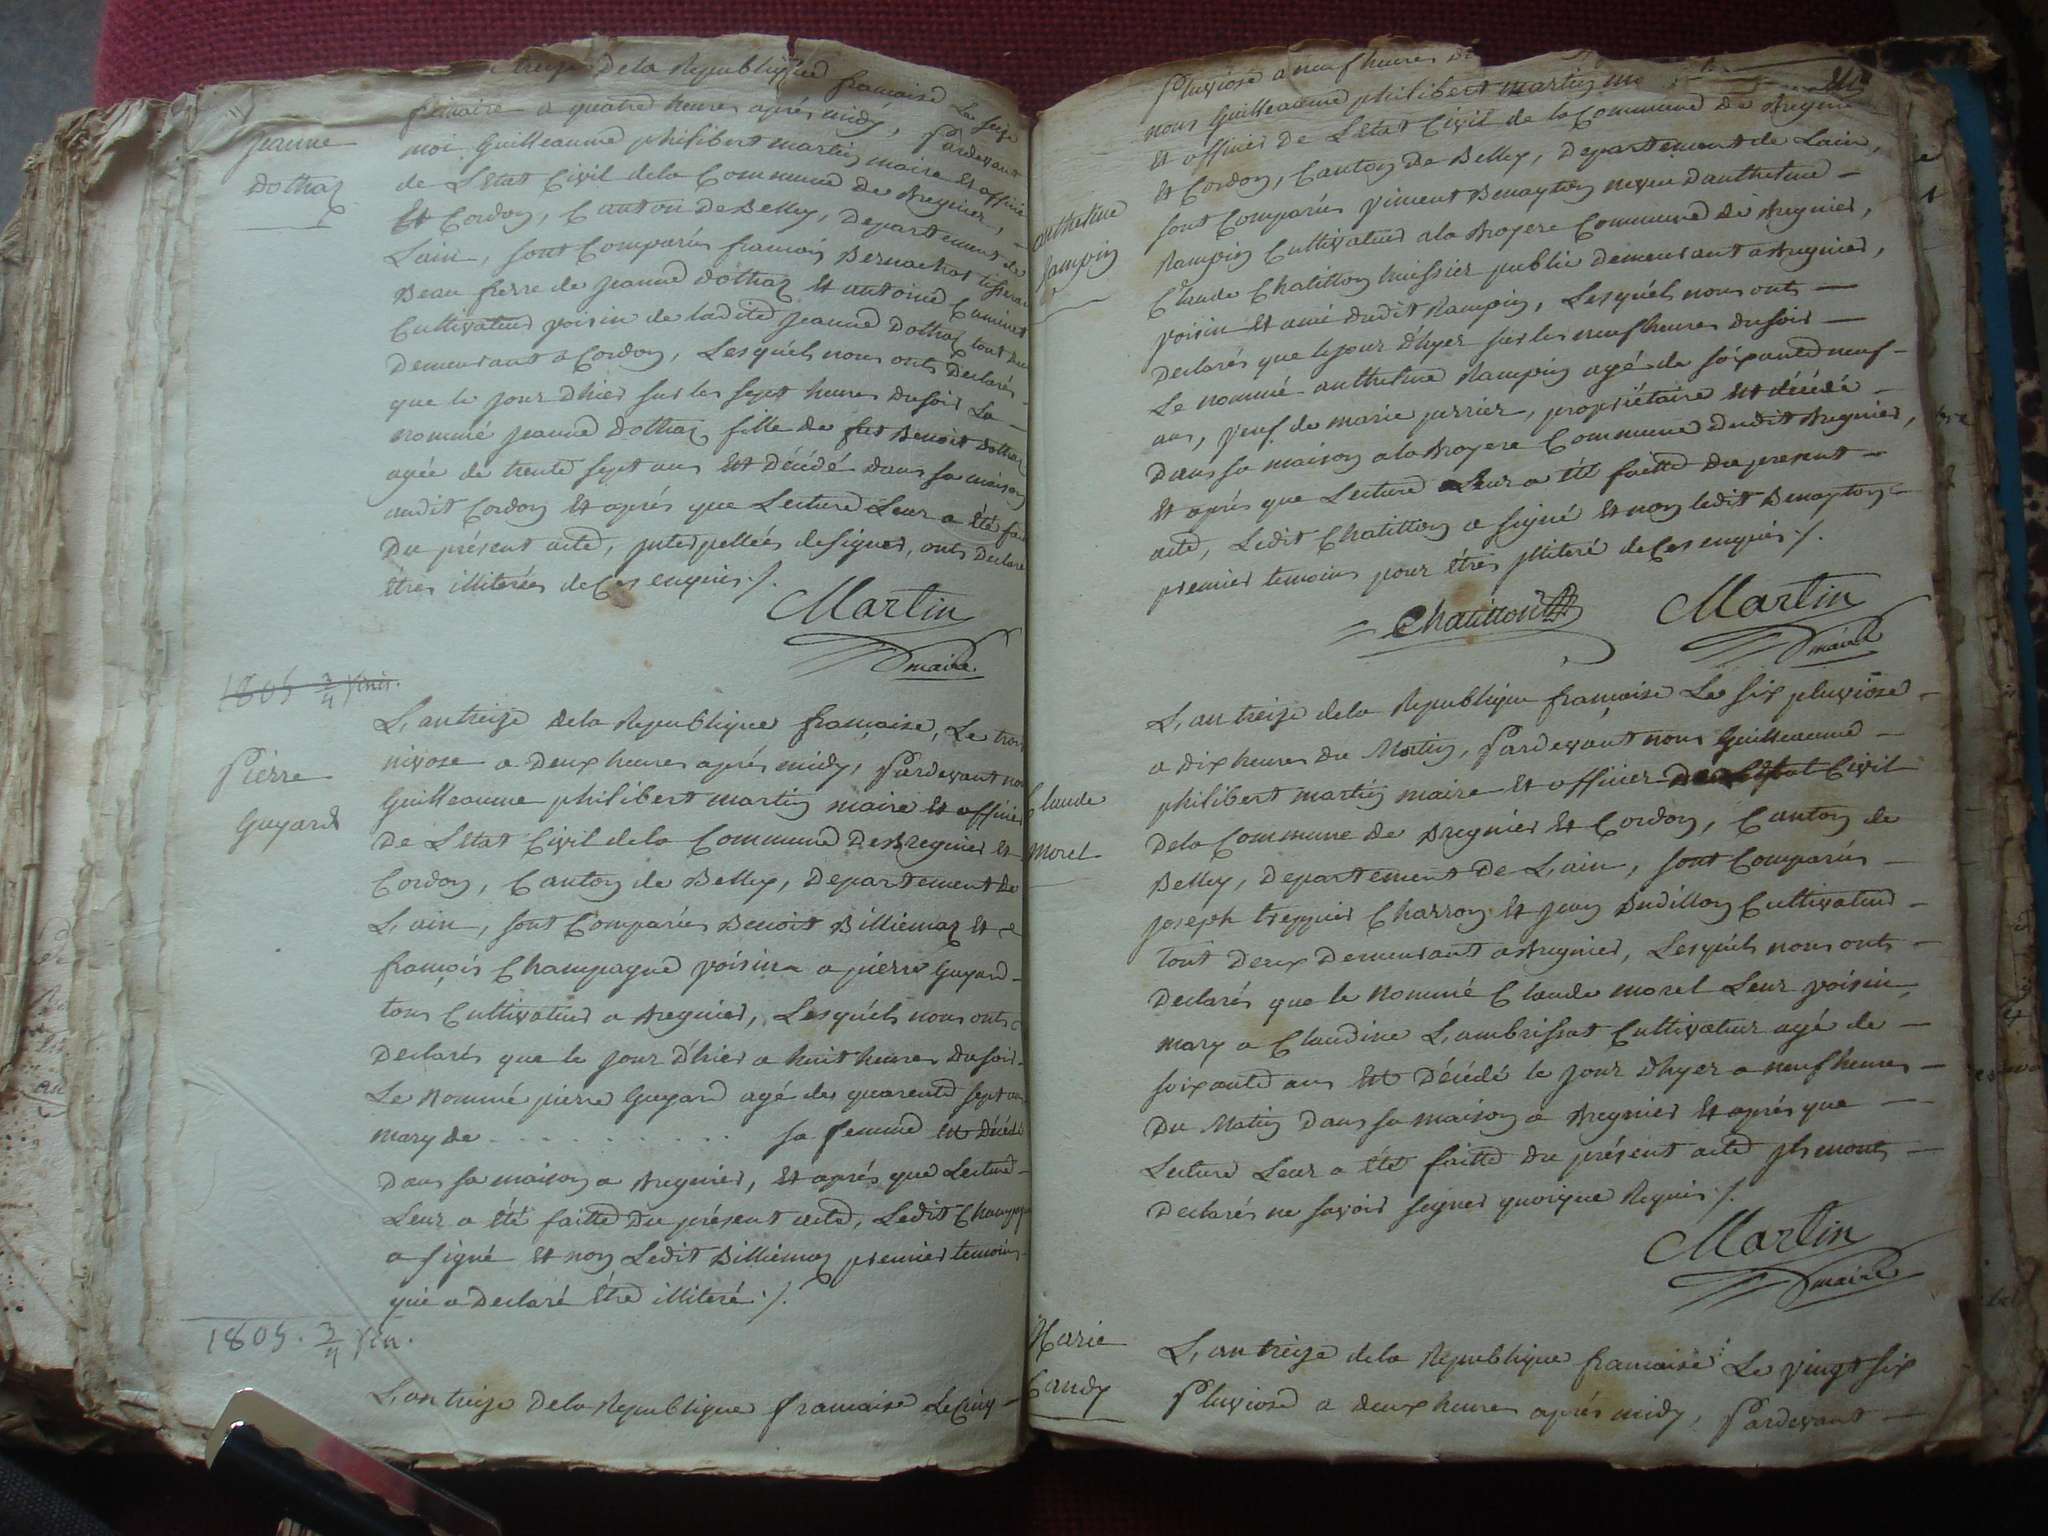 treize de la Republique francaise Le seize
frimaire a quatre heures aprés midy, Pardevant
moi Guilleaume philibert martin maire et officier
de L'Etat Civil de la Commune de Bregnier,
Et Cordon, Canton de Belley, Departement de
Lain, sont Comparus francois Bernachot tisseran
Beau frerre de jeanne Dothaz Et antoine Caminet
Cultivateur voisin de ladite jeanne Dothaz tout deux
Demeurant a Cordon, Lesquels nous onts Declarés
que le jour D'hier sur les sept heures Dusoir La
nommé jeanne Dothaz fille de fut Benoit Dothaz
agée de trente sept ans Est Décédé dans sa maison
audit Cordon Et aprés que Lecture Leur a été fait
Du présent acte, jnterpellées designer, onts Declaré
êtres illiterées de Ces enquis ./.
Martin
maire
Jeanne
Dothaz
1805 3/4 Vin.
L'an treize dela Republique francaise, Le trois
nivose a Deux heures aprés midy, Pardevant nous
Guilleaume philibert martin maire et officier
De L'Etat Civil dela Commune De Bregnier Et
Cordon, Canton de Belley, Departement de
L'ain, sont Comparus Benoit Billiemaz Et
françois Champagne voisin a pierre Guyard
tous Cultivateur a Bregnier, Lesquels nous onts
Declarés que le jour D'hier a huit heures Dusoir
Le Nommé pierre Guyard agé de quarente sept ans
mary de . . . . . . . . . . . sa femme est Décédé
Dans sa maison a Bregnier, Et aprés que Lecture
Leur a été faitte Du présent acte, Ledit Champagne
a signé Et non Ledit Billiemaz premier temoins
qui a Declaré être illiteré ./.
Pierre
Guyard
1805. 3/4 Vin.
L'an treize De la Republique francaise Le Cinq
Pluviose a neuf heures
nous Guilleaume philibert martin
Et officier de L'Etat Civil de la Commune de Bregnier
Et Cordon, Canton De Belley, Departement de Lain,
sont Comparus vincent Benayton neveu D'anthelme
Rampin Cultivateur a la Broyere Commune de Bregnier,
Claude Chatitton huissier public demeurant a Bregnier,
voisin Et ami dudit Rampin, Lesquels nous onts
Declarés que lejour D'hyer sur les neuf heures Dusoir
Le nommé anthelme Rampin agé de soixante neuf
ans, veuf de marie perrier, propriétaire est décédé
Dans sa maison a la Broyere Commune Dudit Bregnier,
Et aprés que Lecture Leur a été faitte Du present
acte, Ledit Chatitton a signé Et non ledit Benayton
premier temoins pour êtres jlliteré de Ces enquis ./.
Chatitton
Martin
maire
anthelme
Rampin
L'an treize dela Republique francaise Le six pluviose
a Dix heures Du Matin, Pardevant nous Guilleaume
philibert martin maire et officier De L'Etat Civil
Dela Commune de Bregnier Et Cordon, Canton de
Belley, Departement De L'ain, sont Comparus
joseph treppier Charron Et jean Budillon Cultivateur
tout Deux Demeurant a Bregnier, Lesquels nous onts
Declarés que le Nommé Claude morel Leur voisin,
mary a Claudine Lambrissat Cultivateur agé de
soixante ans Est Décédé le jour D'hyer a neuf heures
Du Matin Dans sa maison a Bregnier Et aprés que
Lecture Leur a été faitte Du présent acte jls m'onts
Declarés ne savoir signer quoique Requis ./.
Martin
maire
Claude
Morel
L'an treize dela Republique francaise Le vingt six
Pluviose a deux heures aprés midy, Pardevant
Marie
Candy